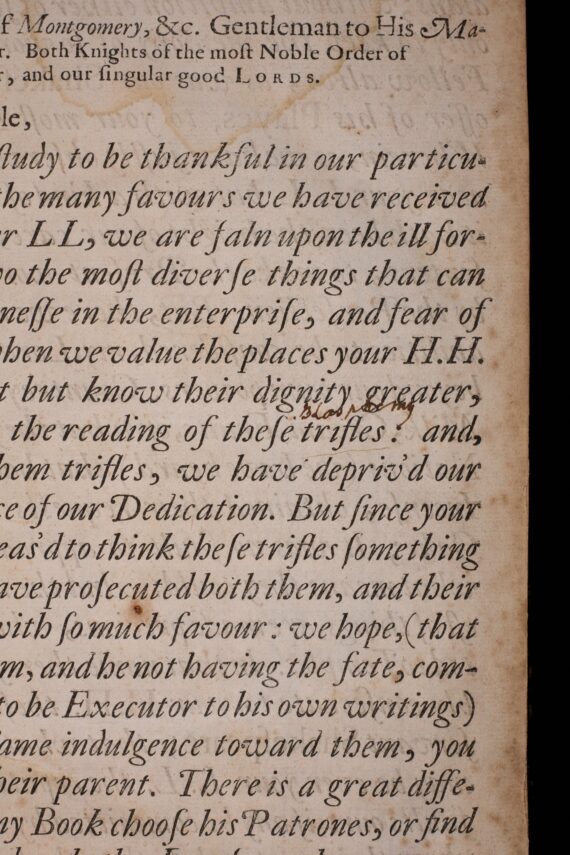 f Montgomery, &c. Gentleman to His Ma-
r. Both Knights of the moſt Noble Order of
r, and our ſingular good LORDS.
le,
ſtudy to be thankful in our particu-
the many favours we have received
r LL, we are faln upon the ill for-
wo the moſt diverſe things that can
neſſe in the enterpriſe, and fear of
when we value the places your H.H.
t but know their dignity greater,
the reading of theſe trifles: and,
hem trifles, we have depriv'd our
ce of our Dedication. But ſince your
eas'd to think theſe trifles ſomething
ave proſecuted both them, and their
with ſo much favour: we hope,(that
m, and he not having the fate, com-
to be Executor to his own writings)
ſame indulgence toward them, you
heir parent. There is a great diffe-
ny Book chooſe his Patrones, or find